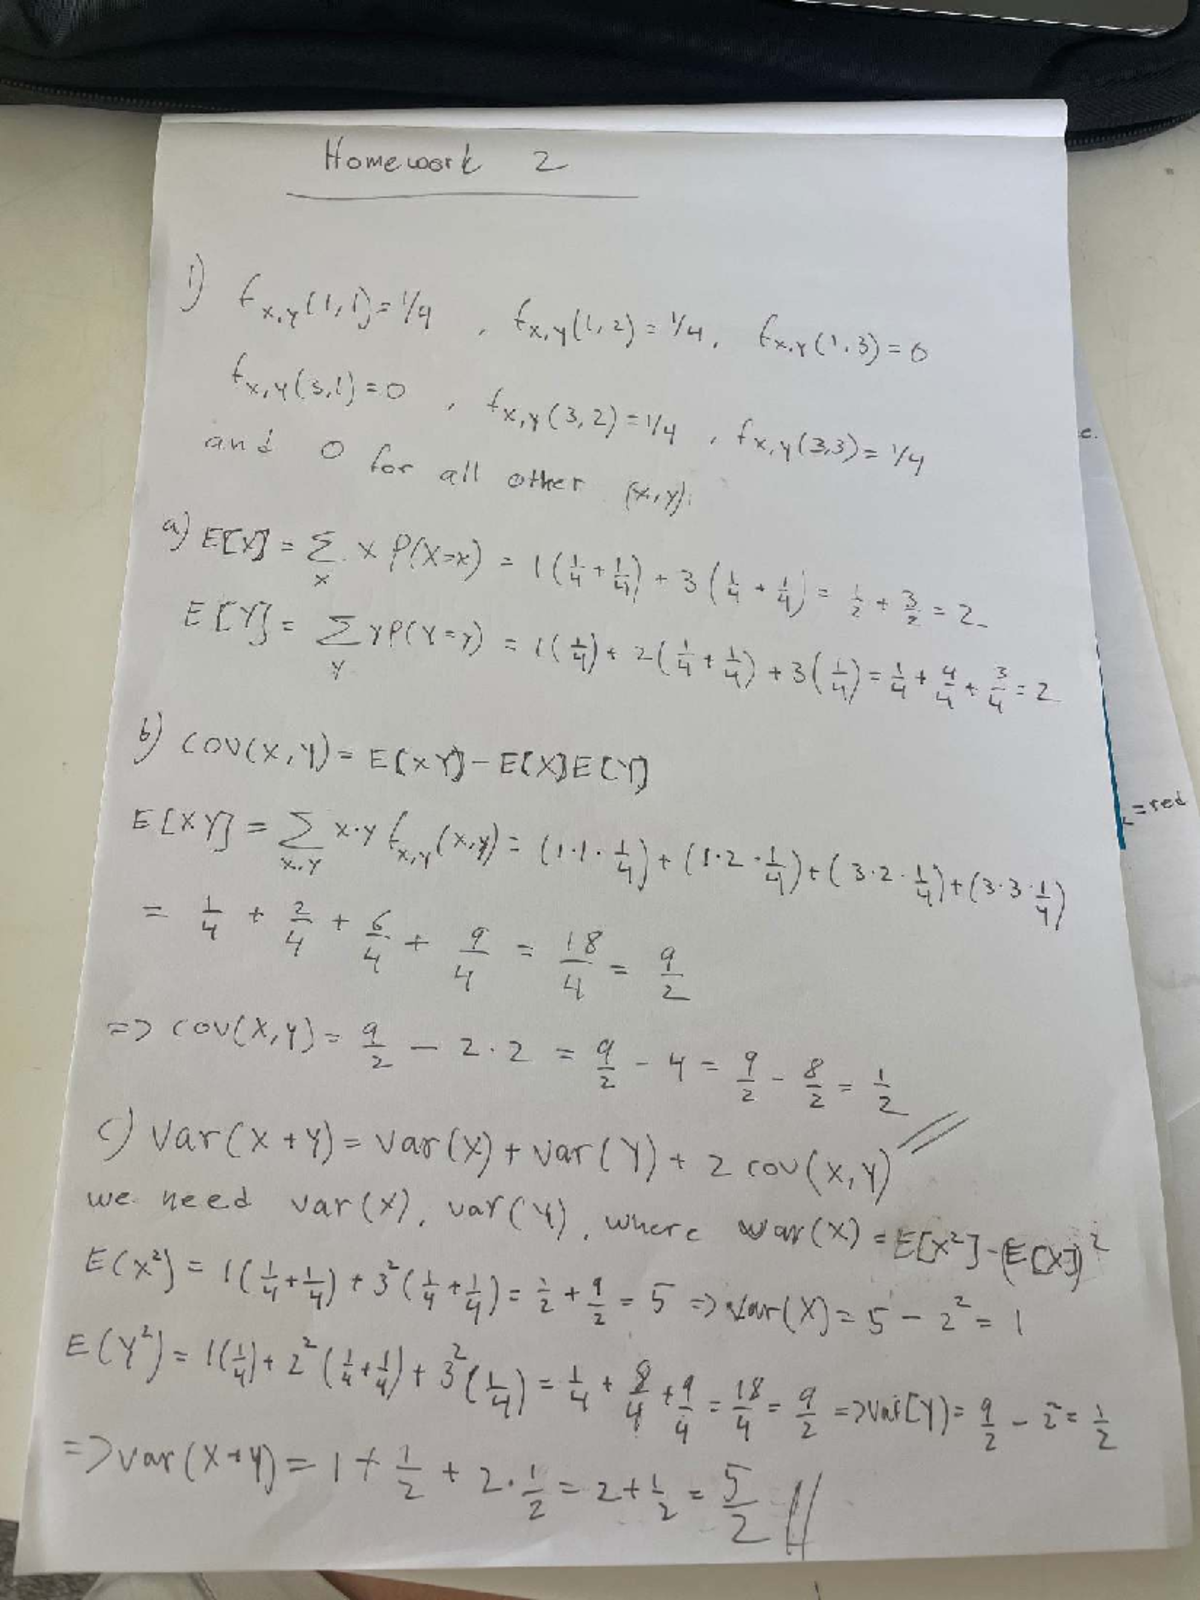 Homework 2
1) f_{x,y}(1,1)=1/4 , f_{x,y}(1,2)=1/4, f_{x,y}(1,3)=0
f_{x,y}(3,1)=0 , f_{x,y}(3,2)=1/4 , f_{x,y}(3,3)=1/4
and 0 for all other (x,y).
a) E[X] = Σ_x x P(X=x) = 1(1/4 + 1/4) + 3(1/4 + 1/4) = 1/2 + 3/2 = 2
E[Y] = Σ_y y P(Y=y) = 1(1/4) + 2(1/4 + 1/4) + 3(1/4) = 1/4 + 4/4 + 3/4 = 2
b) cov(X,Y) = E[XY] - E[X]E[Y]
E[XY] = Σ_{x,y} x·y f_{x,y}(x,y) = (1·1·1/4) + (1·2·1/4) + (3·2·1/4) + (3·3·1/4)
= 1/4 + 2/4 + 6/4 + 9/4 = 18/4 = 9/2
=> cov(X,Y) = 9/2 - 2·2 = 9/2 - 4 = 9/2 - 8/2 = 1/2 //
c) Var(X+Y) = Var(X) + Var(Y) + 2 cov(X,Y)
we need var(X), var(Y), where var(X) = E[X²] - (E[X])²
E(X²) = 1(1/4 + 1/4) + 3²(1/4 + 1/4) = 1/2 + 9/2 = 5 => Var(X) = 5 - 2² = 1
E(Y²) = 1(1/4) + 2²(1/4 + 1/4) + 3²(1/4) = 1/4 + 8/4 + 9/4 = 18/4 = 9/2 => Var(Y) = 9/2 - 2² = 1/2
=> Var(X+Y) = 1 + 1/2 + 2·1/2 = 2 + 1/2 = 5/2 //
= red